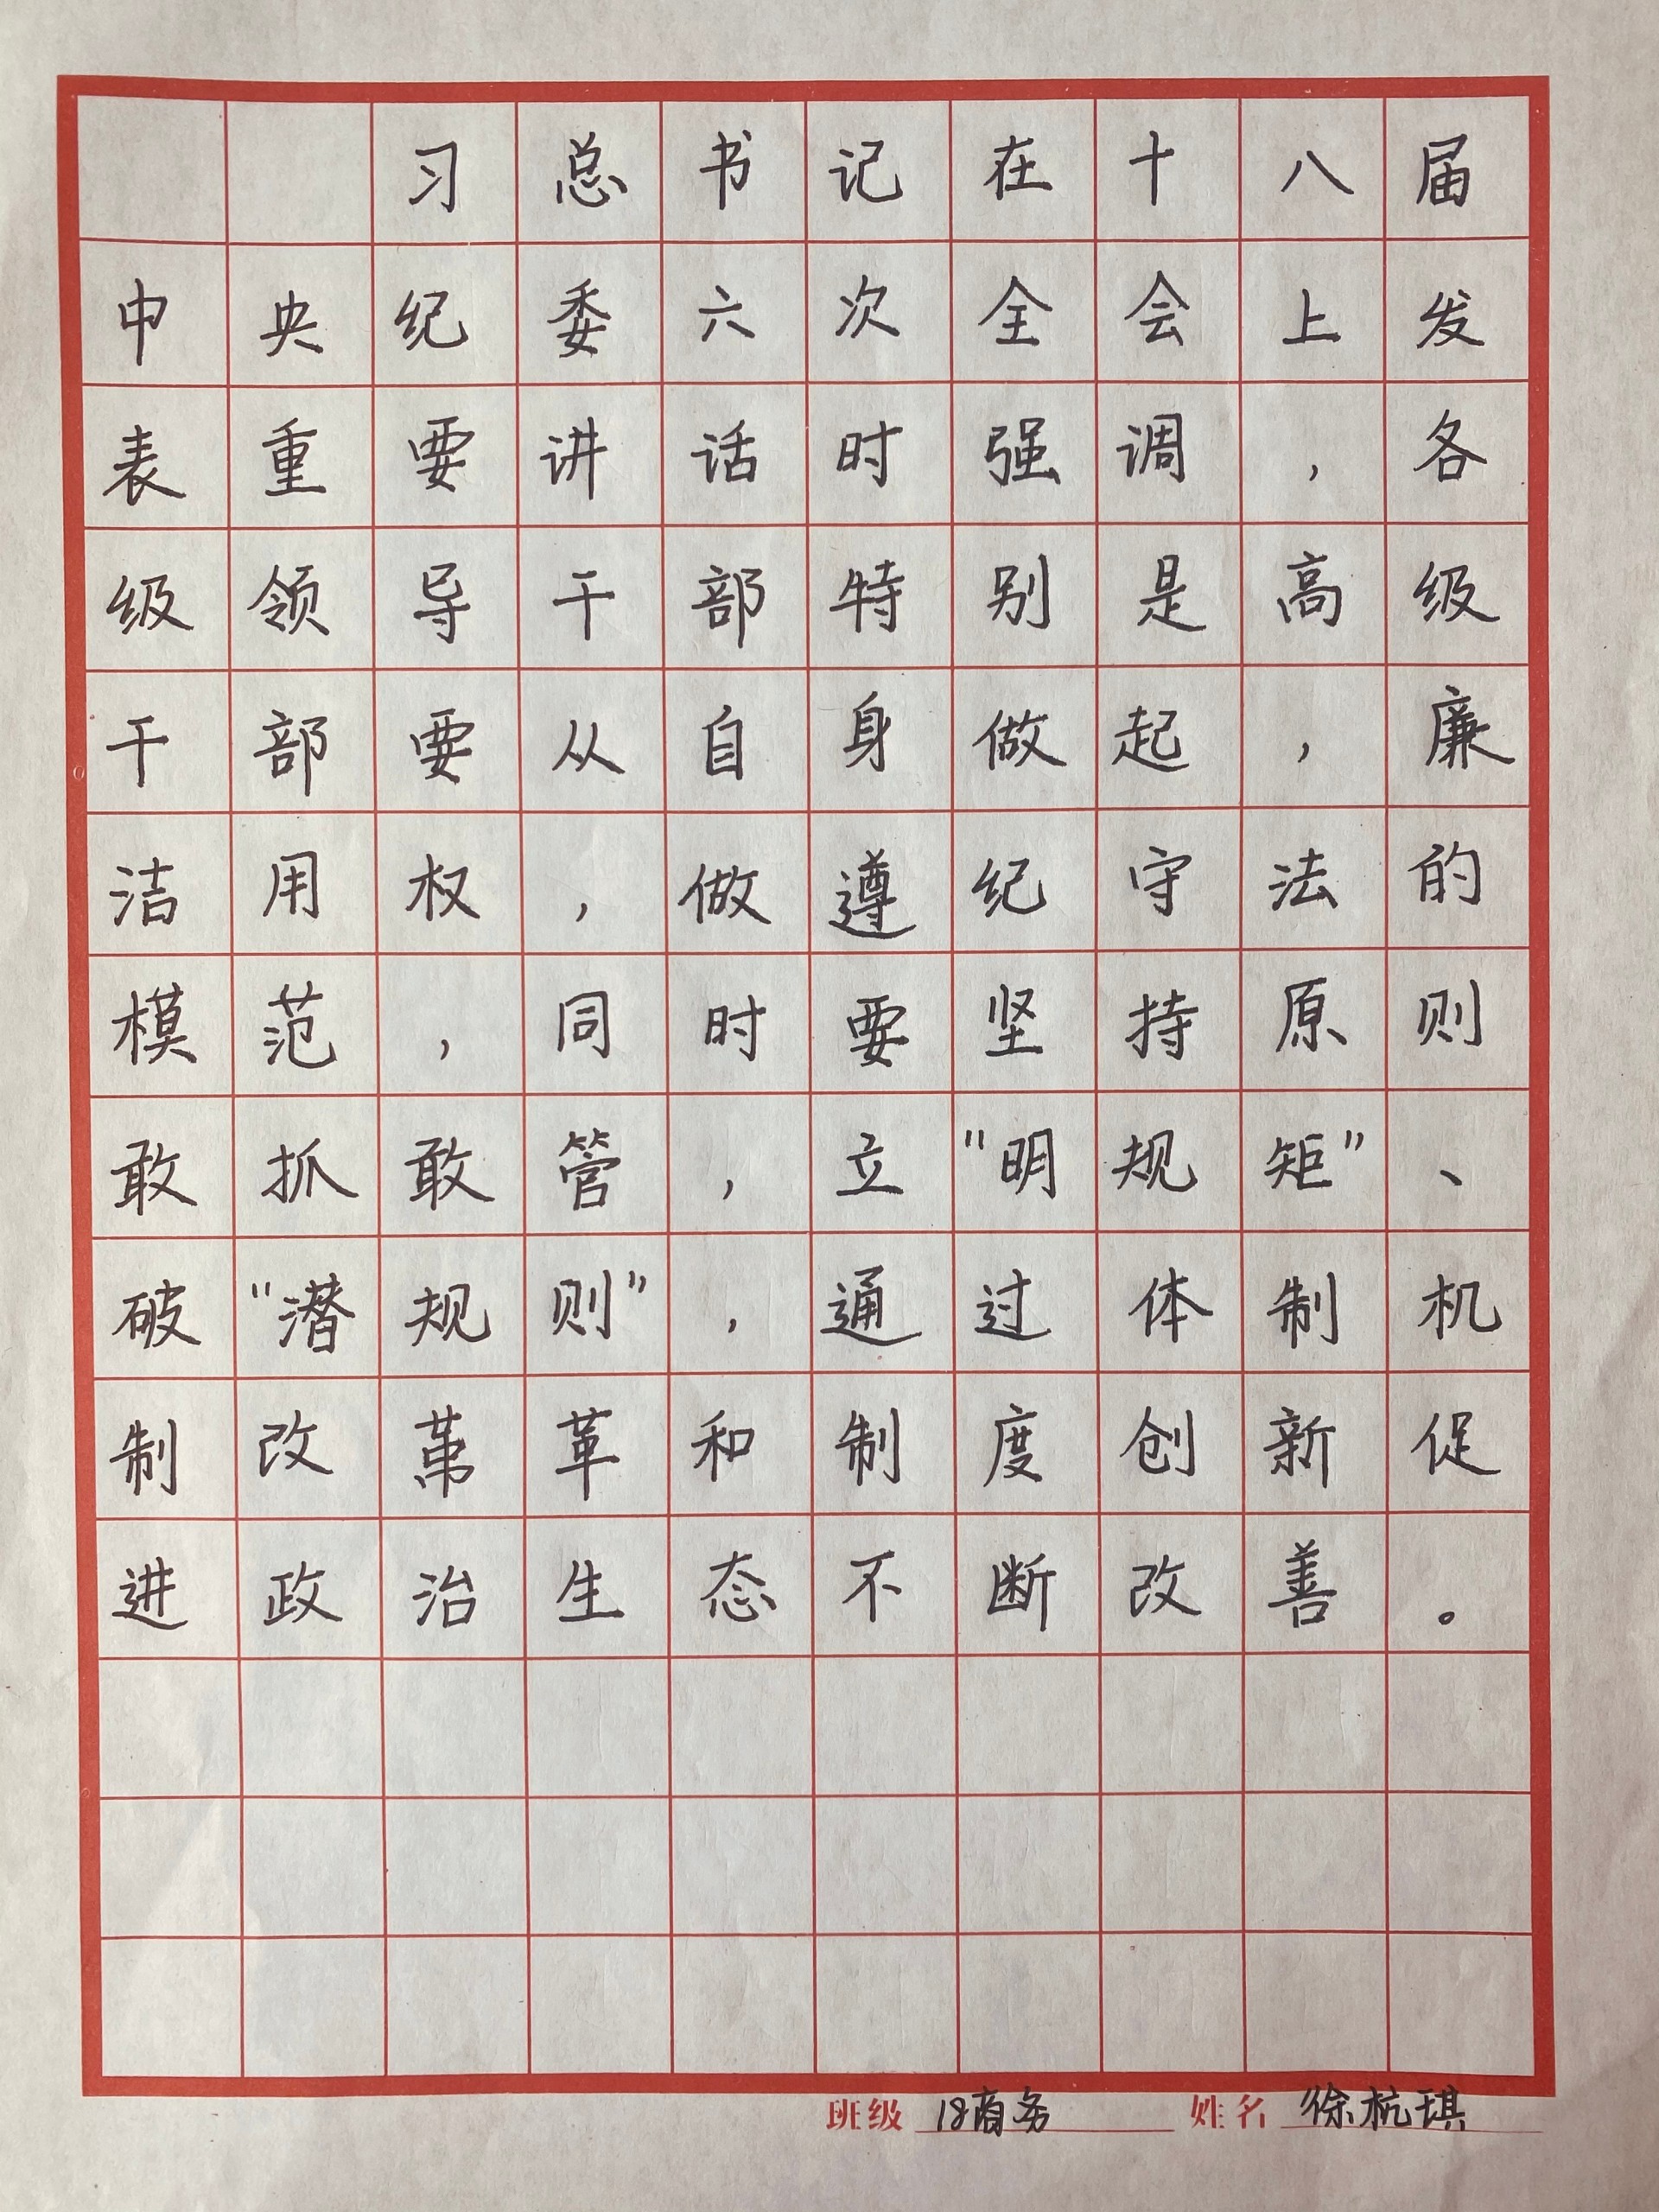 习总书记在十八届
中央纪委六次全会上发
表重要讲话时强调，各
级领导干部特别是高级
干部要从自身做起，廉
洁用权，做遵纪守法的
模范，同时要坚持原则
敢抓敢管，立"明规矩"、
破"潜规则"，通过体制机
制改革和制度创新促
进政治生态不断改善。
班级 18商务 姓名 徐杭琪